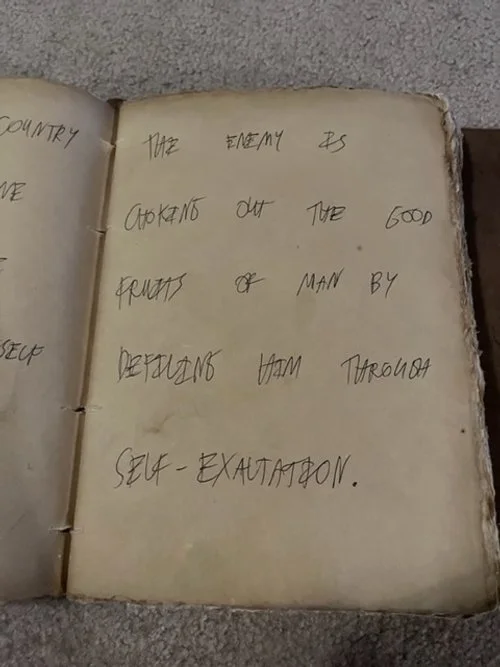 COUNTRY
SELF
THE ENEMY IS
CHOKING OUT THE GOOD
FRUITS OF MAN BY
DEFILING HIM THROUGH
SELF-EXALTATION.